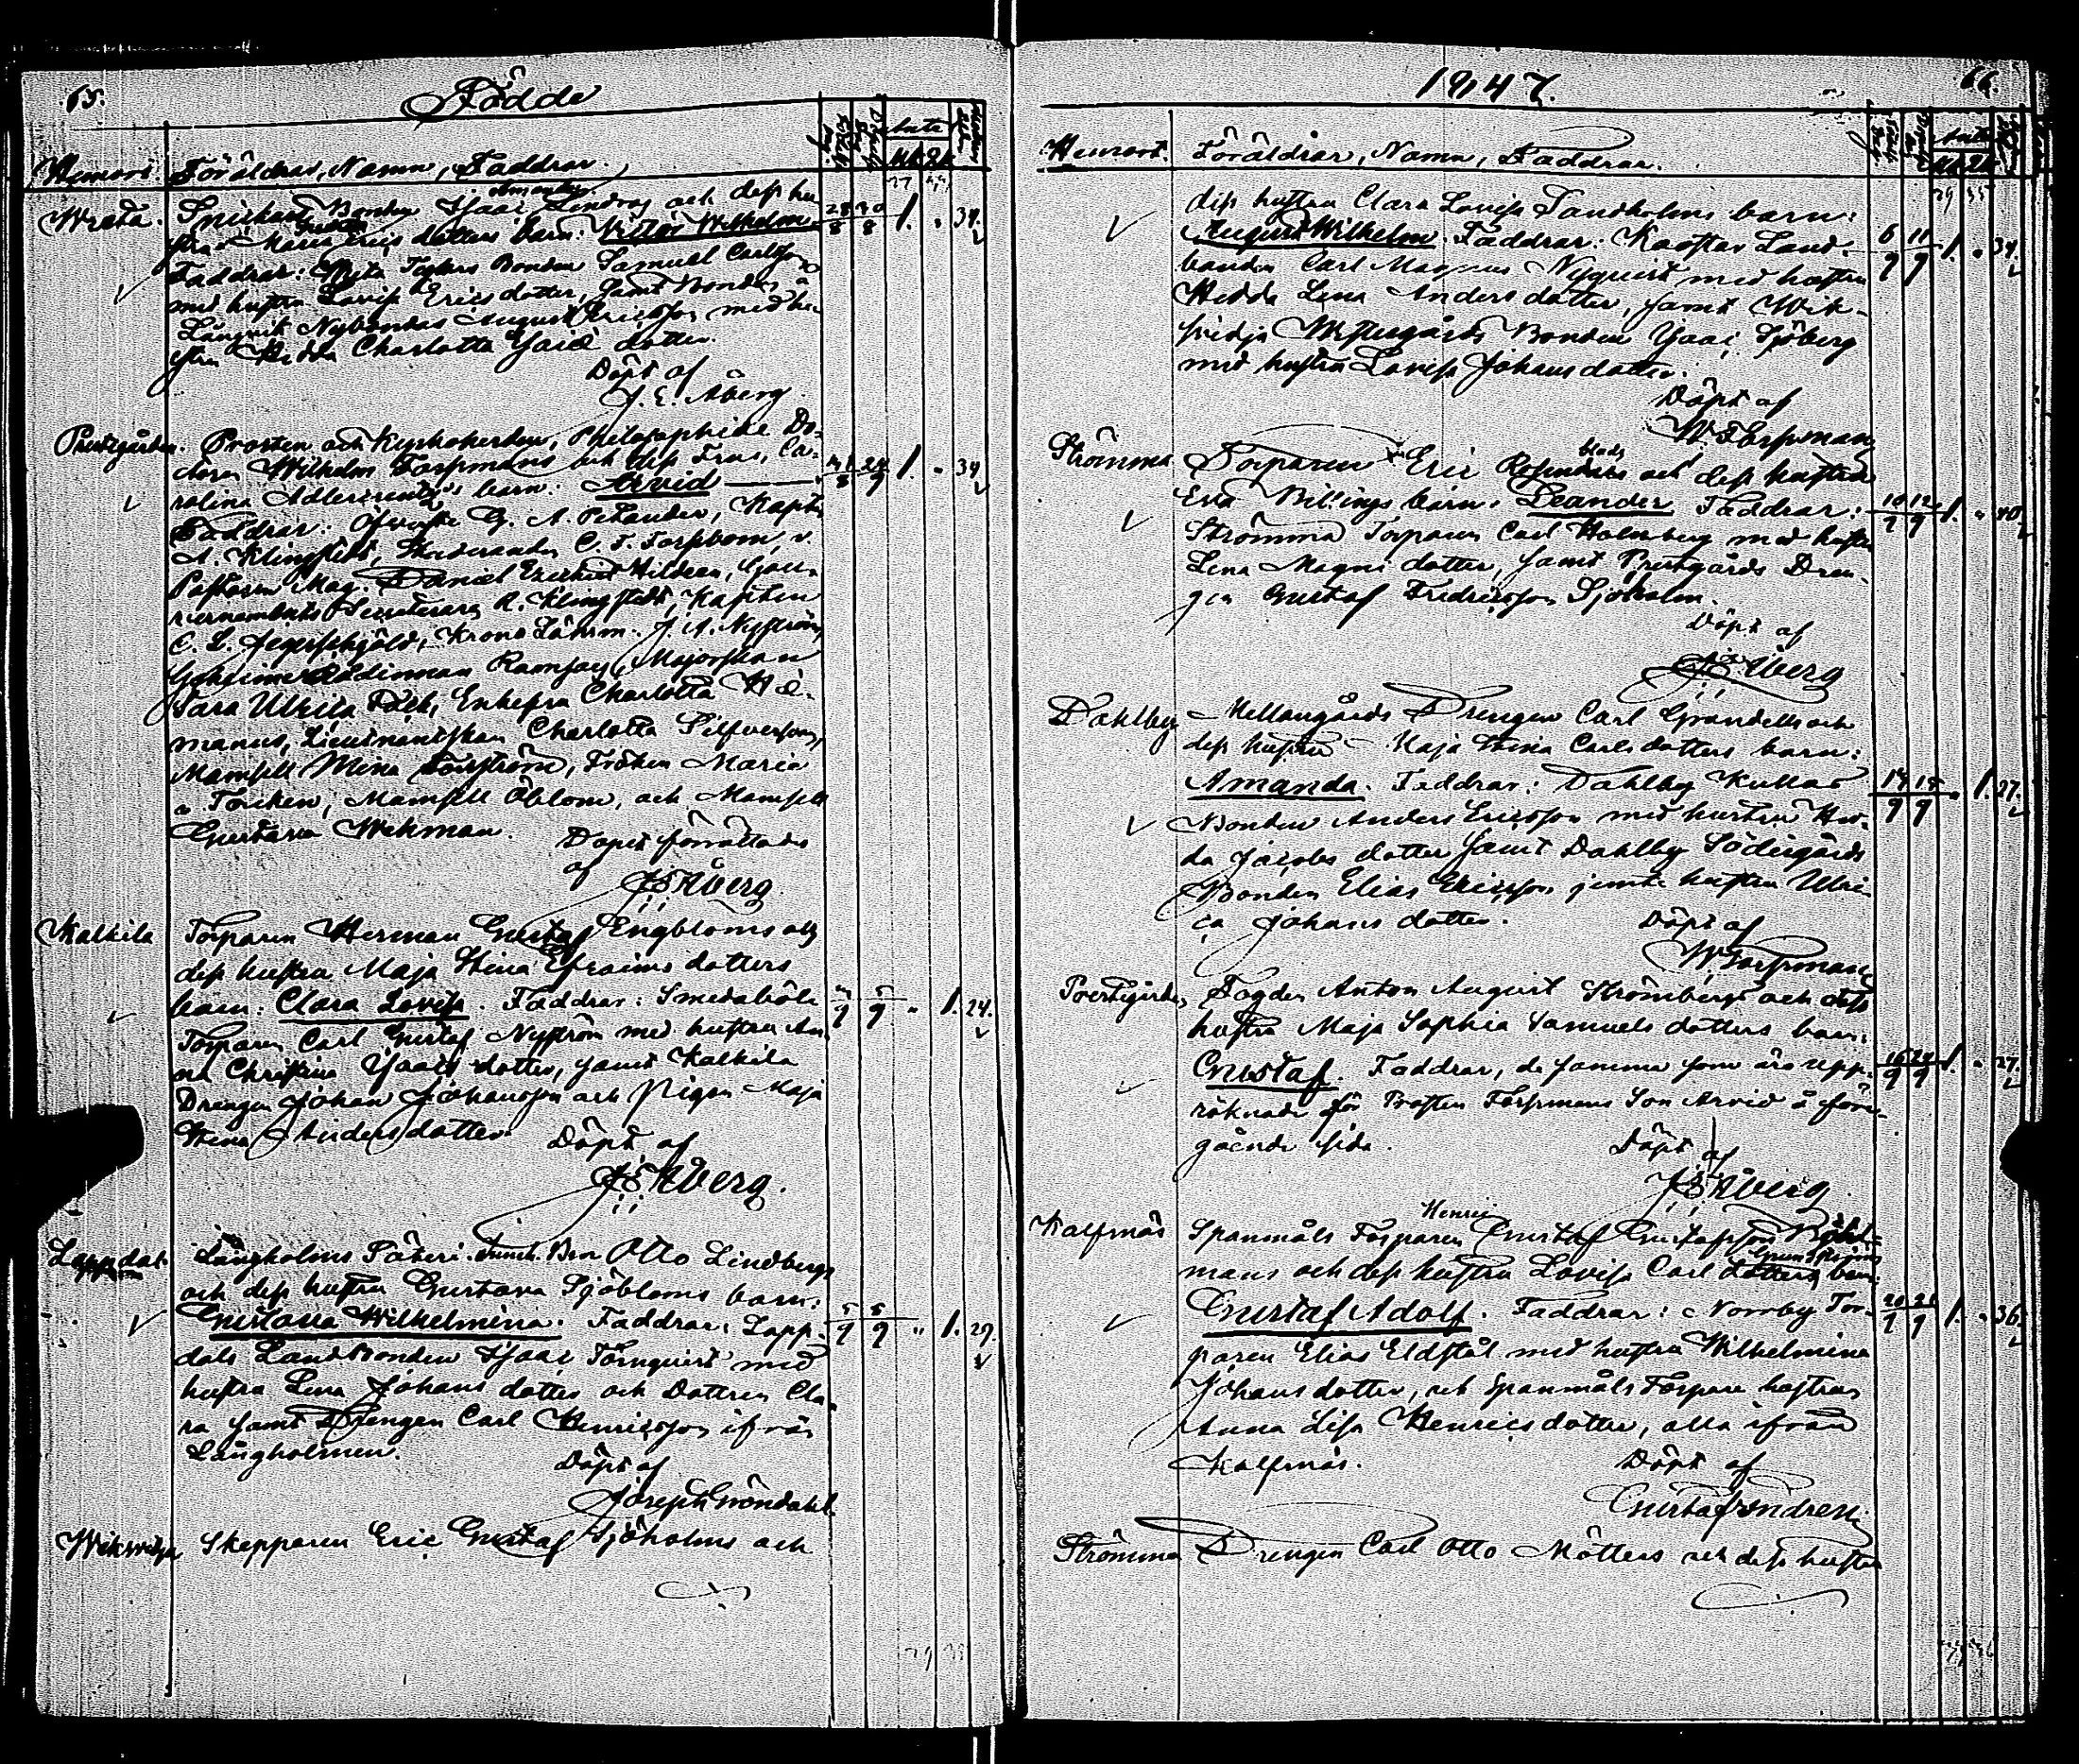 65.
Födde
Hemort. Föräldrar, Namn, Faddrar.
Antal
Mk. Qk.
Amandas
Wreta. Snickare Bonden Isaac Lindros och dess hu
stru Maria Erics dotters barn: Victor Wilhelm. 28/8 30/8 1. " 34.
Faddrar: Bonden Samuel Carlsson
med hustru Lovisa Ericsdotter, samt Bonden
Långvik Nybondas August Ericsson med hu
stru Hedda Charlotta Isaics dotter.
Döpt af
J. E. Åberg.
Prestgården. Prosten och Kyrkoherden, Philosophiæ Do-
ctorn Wilhelm Forssmans och dess Frus, Ca-
rolina Adlercreutz's barn: Arvid 31/8 24/9 1. " 39
Faddrar: Öfverste G. A. Petander, Kapten
A. Klingstedt, Studeranden C. F. Forssbom, v.
Pastorn Mag. Daniel Ezechiel Hildeen, Gou-
vernements Secreteraren R. Klingstedt, Kapten
C. L. Jegerskjöld, Krono Länsm. J. A. Nyström
Geheime Rådinnan Ramsay, Majorskan
Sara Ulrika Falk, Enkefru Charlotta He-
manus, Lieutnantskan Charlotta Silfversvan,
Mamsell Mina Forsström, Fröken Maria
a Forcken, Mamsell Öblom, och Mamsell
Gustava Wekman. Döpet förrättades
af
J E Åberg.
Kalkila Torparen Herman Gustaf Engbloms och
dess hustru Maja Stina Efraims dotters
barn: Clara Lovisa. Faddrar: Smedaböle 3/9 5/9 " 1. 24.
Torparen Carl Gustaf Nyström med hustru An
na Christina Isaacs dotter, samt Kalkila
Drengen Johan Johansson och Pigan Maja
Stina Andersdotter. Döpt af
J E Åberg.
Lappdal Långholms Säteri Otto Lindbergs
och dess hustru Gustava Sjöbloms barn:
Gustava Wilhelmina. Faddrar: Lapp- 5/9 6/9 " 1. 29.
dals Landbonden Isaac Törnquist med
hustru Lena Johans dotter och Dottren Cla-
ra samt Drengen Carl Henricsson ifrån
Långholmen.
Döpt af
Joseph Gröndahl.
Wiksvidja Skepparen Eric Gustaf Sjöholms och
1847.
66.
Hemort. Föräldrar, Namn, Faddrar.
Antal
Mk. Qk.
dess hustru Clara Lovisa Sandholms barn:
August Wilhelm. Faddrar: Land- 6/9 11/9 1. " 34.
bonden Carl Magnus Nyquist med hustru
Hedda Lena Anders dotter, samt Wik-
svidja Westergårds Bonden Isaac Sjöberg
med hustru Lovisa Johans dotter.
Döpt af
W. Forssman
Strömma Torparen Eric Rosenblads och dess hustru
Eva Billings barn: Leander Faddrar: 10/9 12/9 1. " 40.
Strömma Torparen Carl Holmberg med hustru
Lena Magni dotter, samt Prestgårds Dren-
gen Gustaf Fredricsson Sjöholm.
Döpt af
J E Åberg
Dahlby Mellangårds Drengen Carl Grandells och
dess hustru Maja Stina Carlsdotters barn:
Amanda. Faddrar: Dahlby Kullas 14/9 18/9 " 1. 27.
Bonden Anders Ericsson med hustru He-
da Jacobs dotter samt Dahlby Södergårds
Bonden Elias Ericsson jemte hustru Ulri-
ca Johans dotter. Döpt af
W Forssman
Prestgården Fogden Anton August Strömbergs och dess
hustru Maja Sophia Samuels dotters barn:
Gustaf. Faddrar, de samma som äro upp- 16/9 24/9 1. " 27.
räknade för Prosten Forssmans Son Arvid å före-
gående sida. Döpt
af
J E Åberg
Henric
Kalfnäs Spanmåls Torparen Gustaf Gustafsson
mans och dess hustru Lovisa Carl dotters barn:
Gustaf Adolf. Faddrar: Norrby Tor- 20/9 21/9 1. " 36.
paren Elias Eldstål med hustru Wilhelmina
Johans dotter, och Spanmåls Torpare hustrun
Anna Lisa Henrics dotter, alla ifrån
Kalfnäs. Döpt af
Gustaf Indren
Strömma Drengen Carl Otto Mötters och dess hustru